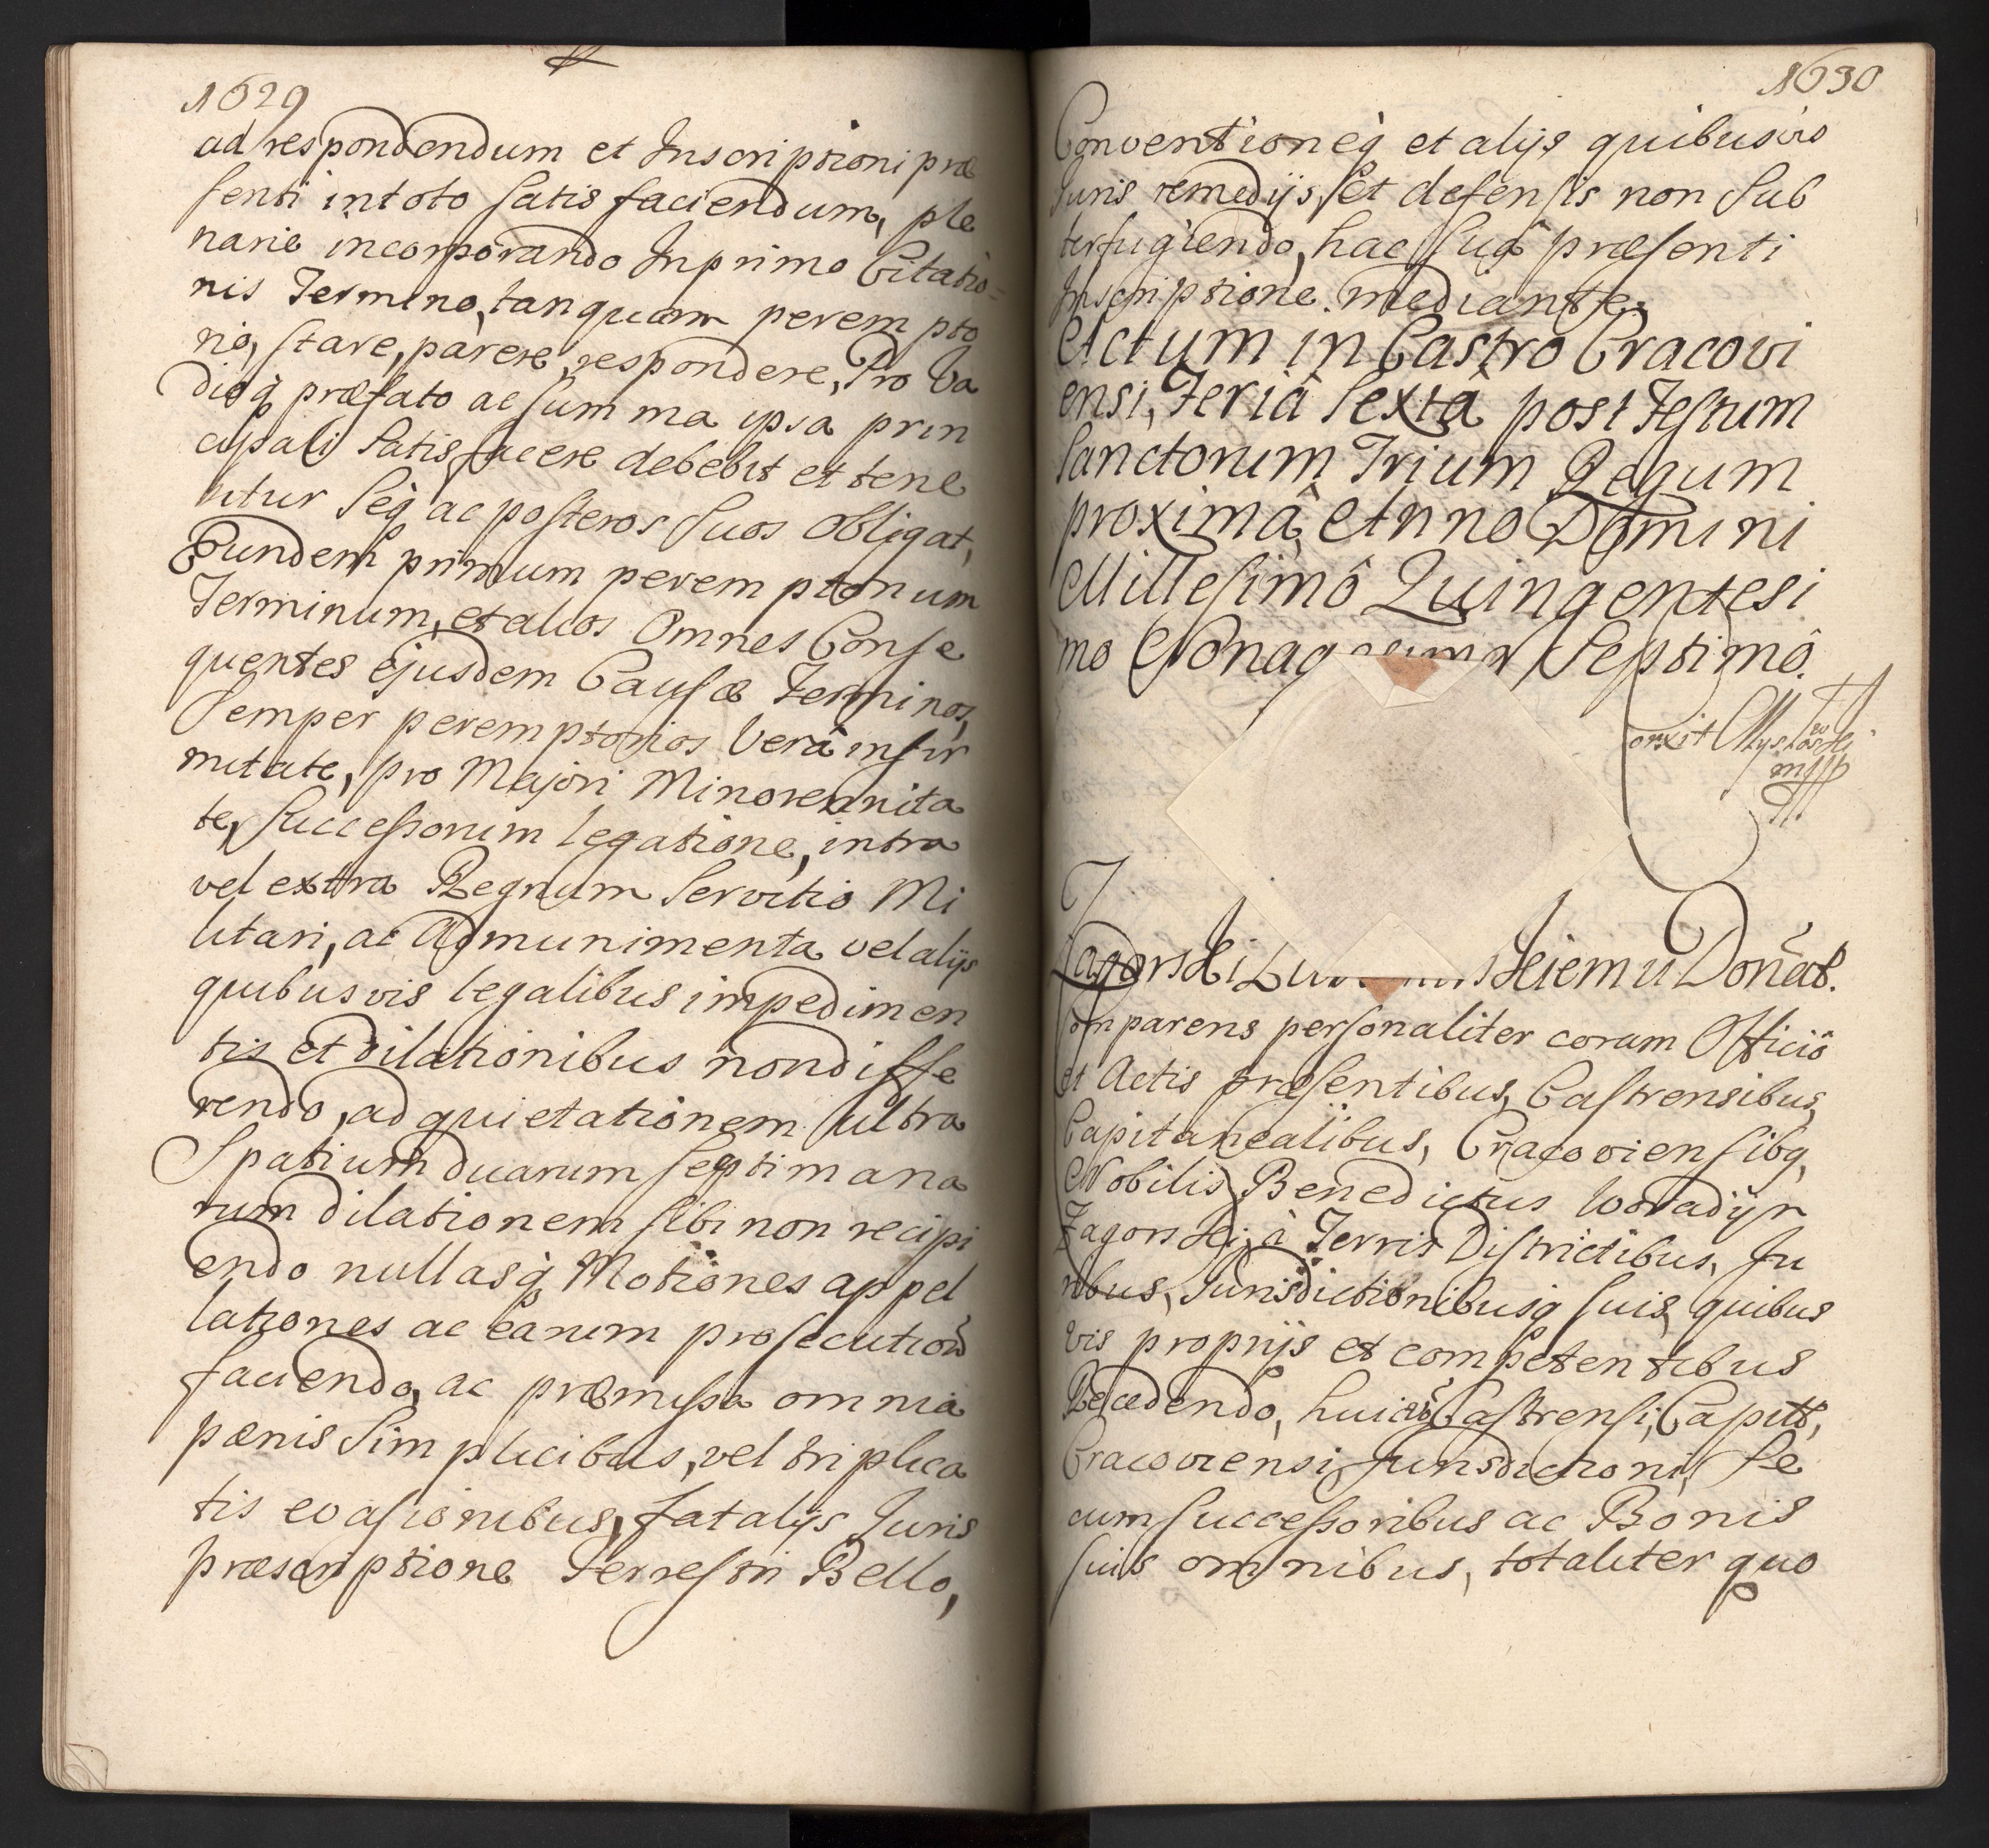 1629
ad respondendum et Inscriptioni præ
senti intoto satis faciendum, ple
narie incorporando Inprimo Citatio=
nis Termino, tanquam perempto
rio, stare, parere, respondere, Pro Va
dioq præfato ac summa ipsa prin
cipali Satisfacere debebit et tene
bitur Seq ac posteros Suos obligat,
Eundem primum peremptorium
Terminum, et alios Omnes Conse
quentes ejusdem Causæ Terminos,
Semper peremptorios Verâ infir
mitate, pro Majori Minorennita
te, Successorum legatione, intra
vel extra Regnum Servitio Mi
litari, ac Ad munimenta vel alijs
quibusvis legalibus impedimen
tis et dilationibus non diffe
rendo, ad quietationem ultra
Spatium duarum septimana
rum dilationem sibi non recipi
endo nullasq Motiones appel
lationes ac earum prosecution̄
faciendo, ac præmissa omnia
pænis Simplicibus, vel triplica
tis evasionibus, fatalijs Juris
præscriptione terrestri Bello,
1630
Conventioneq et alijs quibusvis
Juris remedijs, et defensis non Sub
terfugiendo, hac suâ præsenti
Inscriptione mediante.
Actum in Castro Cracovi
ensi, Feriâ Sextâ post Festum
Sanctorum Trium Regum
proximâ, Anno Domini
Millesimô Quingentesi
mo Nonagesimo Septimô.
Zagorski skiemu Donat.
Comparens personaliter coram Officiô
et Actis præsentibus, Castrensibus,
Capitanealibus, Cracoviensibq,
Nobilis Benedictus Woradijn
Zagorskij, à Terris Districtibus, Ju
ribus, Jurisdictionibusq suis, quibus
vis proprijs et competentibus
Recedendo, huic Castrensi, Capitt,
Cracoviensi, Jurisdictioni, Se
cum successoribus ac Bonis
suis omnibus, totaliter quo